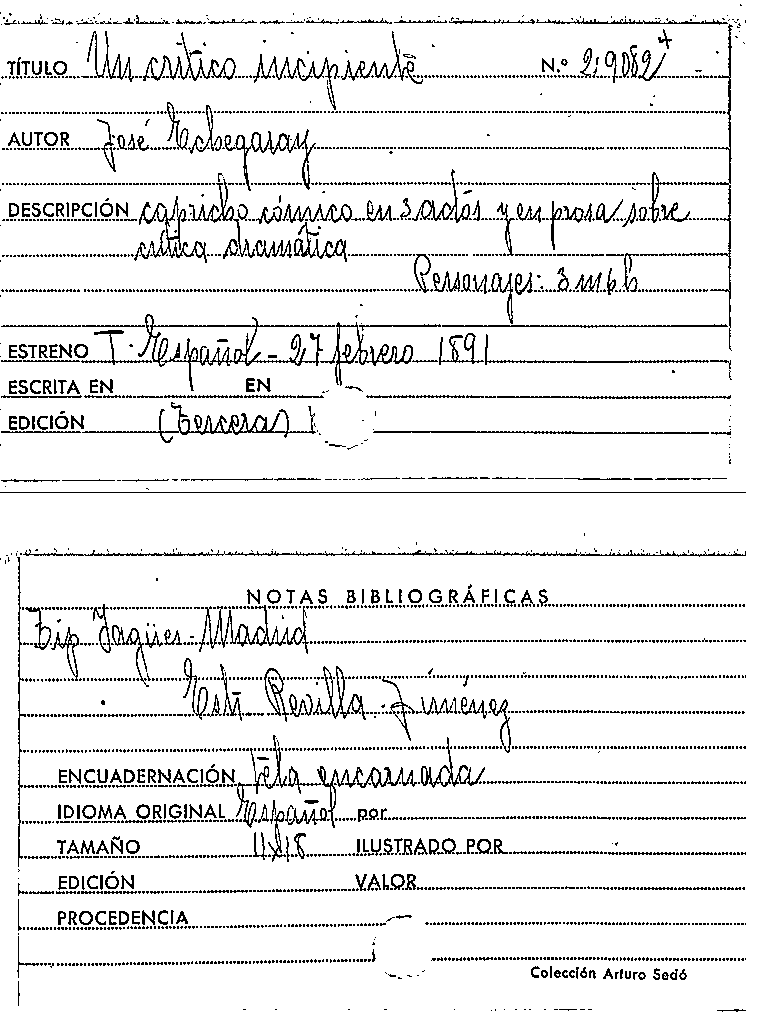 TÍTULO Un crítico incipiente N.º 219082
AUTOR José Echegaray
DESCRIPCIÓN capricho cómico en 3 actos y en prosa sobre
crítica dramática
Personajes: 3 m 6 h
ESTRENO T. Español - 27 febrero 1891
ESCRITA EN EN
EDICIÓN (Tercera)
NOTAS BIBLIOGRÁFICAS
Tip Yagües - Madrid
Est. Revilla - Jiménez
ENCUADERNACIÓN tela encarnada
IDIOMA ORIGINAL Español por
TAMAÑO 11x18 ILUSTRADO POR
EDICIÓN VALOR
PROCEDENCIA
Colección Arturo Sedó